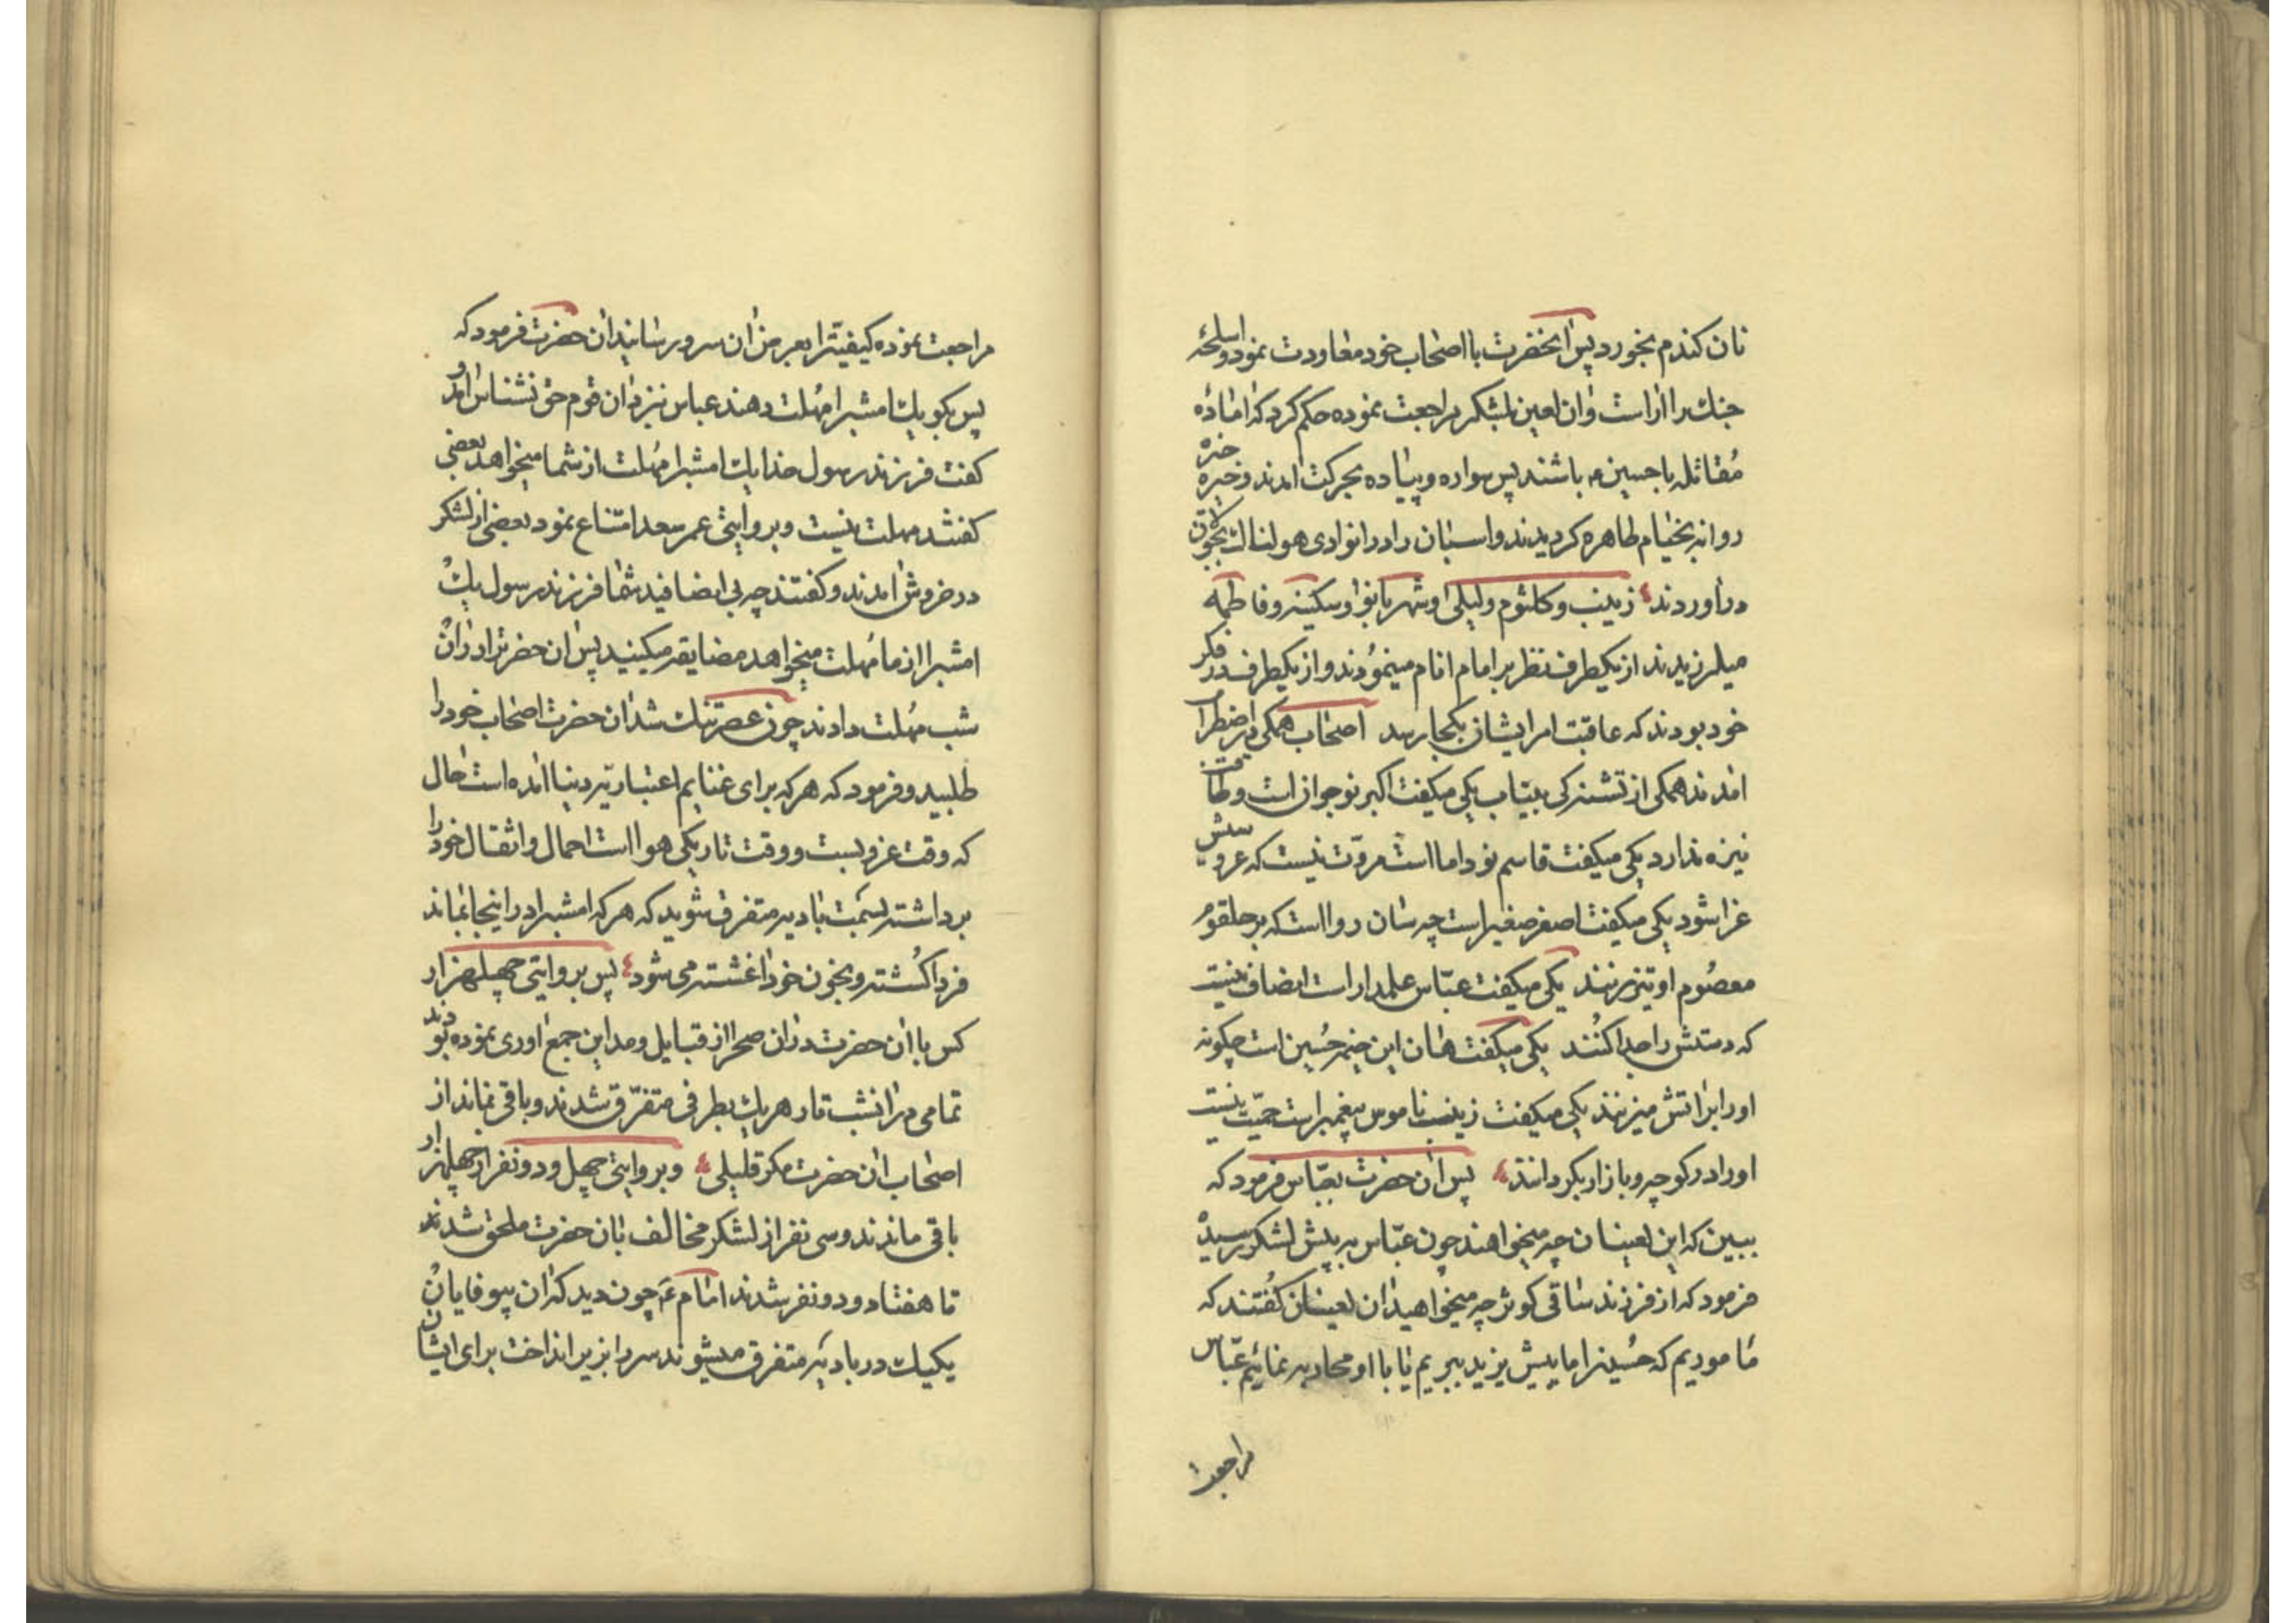 نان کندم نخورد پس انحضرت با اصحاب خود معاودت نمود و اسلحهٔ
جنك را اراست وان لعین بلشکر مراجعت نموده حکم کرد که امادهٔ
مقاتله با حسین ع باشند پس سواره و پیاده بحرکت امدند و خیره خیره
روانه بخیام طاهره کردیدند و اسبان را دران وادی هولناك
دراوردند زینب و کلثوم و لیلی و شهربانو و سکینه و فاطمه
میلرزیدند از یکطرف نظر بر امام انام مینمودند و از یکطرف در فکر
خود بودند که عاقبت امر ایشان بکجا رسد اصحاب همکی در اضطراب
امدند همکی از تشنه کی بیتاب یکی میکفت اکبر نوجوان است و طاقت
نیزه ندارد یکی میکفت قاسم نو داما است مروّت نیست که عروسیش
عزا شود یکی میکفت اصغر صغیر است چه سان روا است که بر حلقوم
معصوم او تیر زنند یکی میکفت عبّاس علمدار است انصاف نیست
که دستش را جدا کنند یکی میکفت هان این خیمه حسین است چکونه
اورا براتش میزنند یکی میکفت زینب ناموس پیغمبر است حمیّت نیست
اورا در کوچه و بازار بکردانند پس ان حضرت بعبّاس فرمود که
ببین که این لعینان چه میخواهند چون عبّاس به پیش لشکر رسید
فرمود که از فرزند ساقی کوثر چه میخواهید ان لعینان کفتند که
ما موریم که حسین را یا پیش یزید ببریم یا با او محاربه نمائیم عبّاس
مراجعت
مراجعت نموده کیفیّت را بعرض ان سرور رسانید ان حضرت فرمود که
پس بکو یك امشب را مهلت دهند عباس نزد ان قوم حق نشناس امد و
کفت فرزند رسول خدا یك امشب را مهلت از شما میخواهد بعضی
کفتند مهلت نیست و بروایتی عمر سعد امتناع نمود بعضی از لشکر
در خروش امدند و کفتند چه بی انصافید شما فرزند رسول یك
امشب را از ما مهلت میخواهد مضایقه میکنید پس ان حضرت را دران
شب مهلت دادند چون عصر تنك شد ان حضرت اصحاب خود را
طلبید و فرمود که هر که برای غنایم اعتباریّه دنیا امده است حال
که وقت عزوبست و وقت تاریکی هوا است احمال و اثقال خود را
برداشته بسمت بادیه متفرق شوید که هر که امشب را در اینجا بماند
فردا کشته و بخون خود اغشته می شود پس بروایتی چهلهزار
کس با ان حضرت دران صحرا از قبایل و مداین جمع اوری نموده بودند
تمامی در انشب تار هر یك بطرفی متفرّق شدند و باقی نماند از
اصحاب ان حضرت مکر قلیلی و بروایتی چهل و دو نفر از چهلهزار
باقی ماندند و سی نفر از لشکر مخالف بان حضرت ملحق شدند
تا هفتاد و دو نفر شدند امام ع چون دید که ان بیوفایان
یکیك در بادیه متفرق میشوند سر را بزیر انداخت برای ایشان